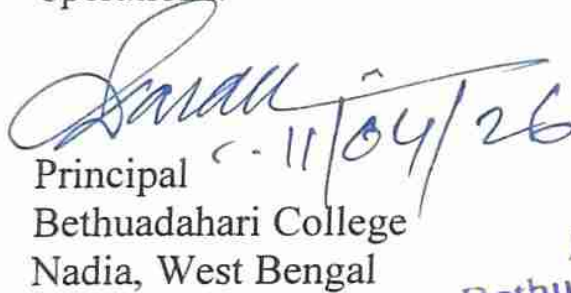 11/04/26
Principal
Bethuadahari College
Nadia, West Bengal